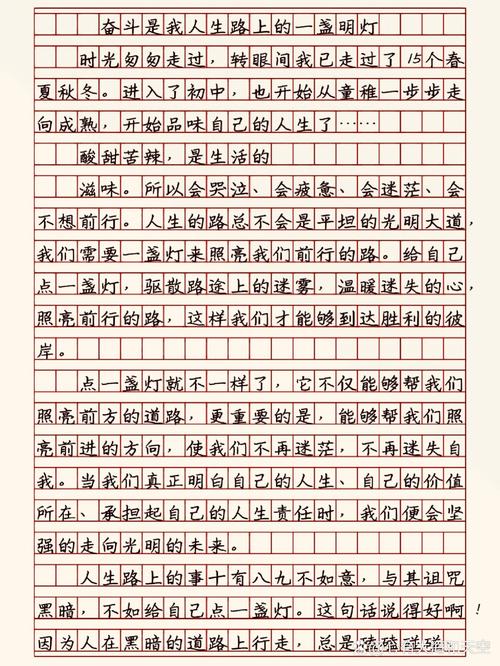 奋斗是我人生路上的一盏明灯
时光匆匆走过，转眼间我已走过了15个春
夏秋冬。进入了初中，也开始从童稚一步步走
向成熟，开始品味自己的人生了……
酸甜苦辣，是生活的
滋味。所以会哭泣、会疲惫、会迷茫、会
不想前行。人生的路总不会是平坦的光明大道，
我们需要一盏灯来照亮我们前行的路。给自己
点一盏灯，驱散路途上的迷雾，温暖迷失的心，
照亮前行的路，这样我们才能够到达胜利的彼
岸。
点一盏灯就不一样了，它不仅能够帮我们
照亮前方的道路，更重要的是，能够帮我们照
亮前进的方向，使我们不再迷茫，不再迷失自
我。当我们真正明白自己的人生、自己的价值
所在、承担起自己的人生责任时，我们便会坚
强的走向光明的未来。
人生路上的事十有八九不如意，与其诅咒
黑暗，不如给自己点一盏灯。这句话说得好啊！
因为人在黑暗的道路上行走，总是磕磕碰碰